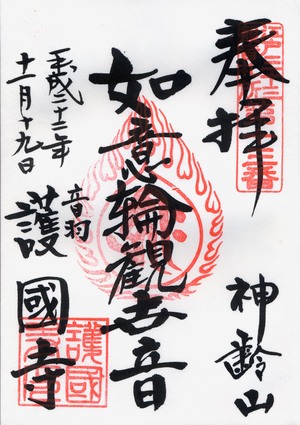 奉拝
神齢山
如意輪観世音
音羽
護國寺
平成二十二年
十一月十九日
護國寺